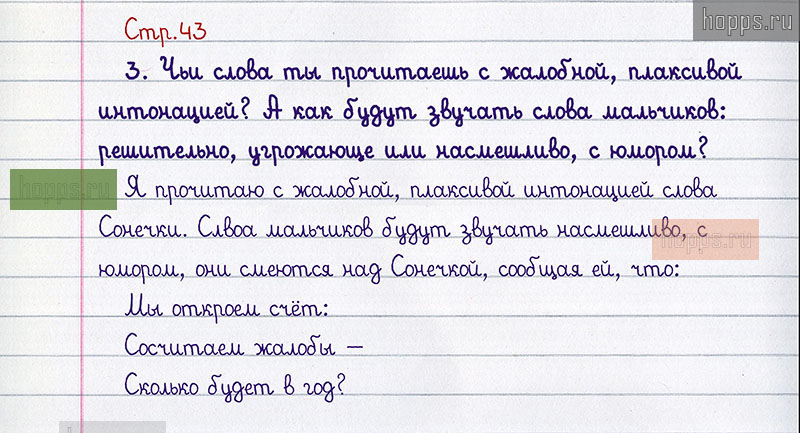 hopps.ru
Стр.43
3. Чьи слова ты прочитаешь с жалобной, плаксивой
интонацией? А как будут звучать слова мальчиков:
решительно, угрожающе или насмешливо, с юмором?
hopps.ru
Я прочитаю с жалобной, плаксивой интонацией слова
Сонечки. Слвоа мальчиков будут звучать насмешливо, с
hopps.ru
юмором, они смеются над Сонечкой, сообщая ей, что:
Мы откроем счёт:
Сосчитаем жалобы –
Сколько будет в год?